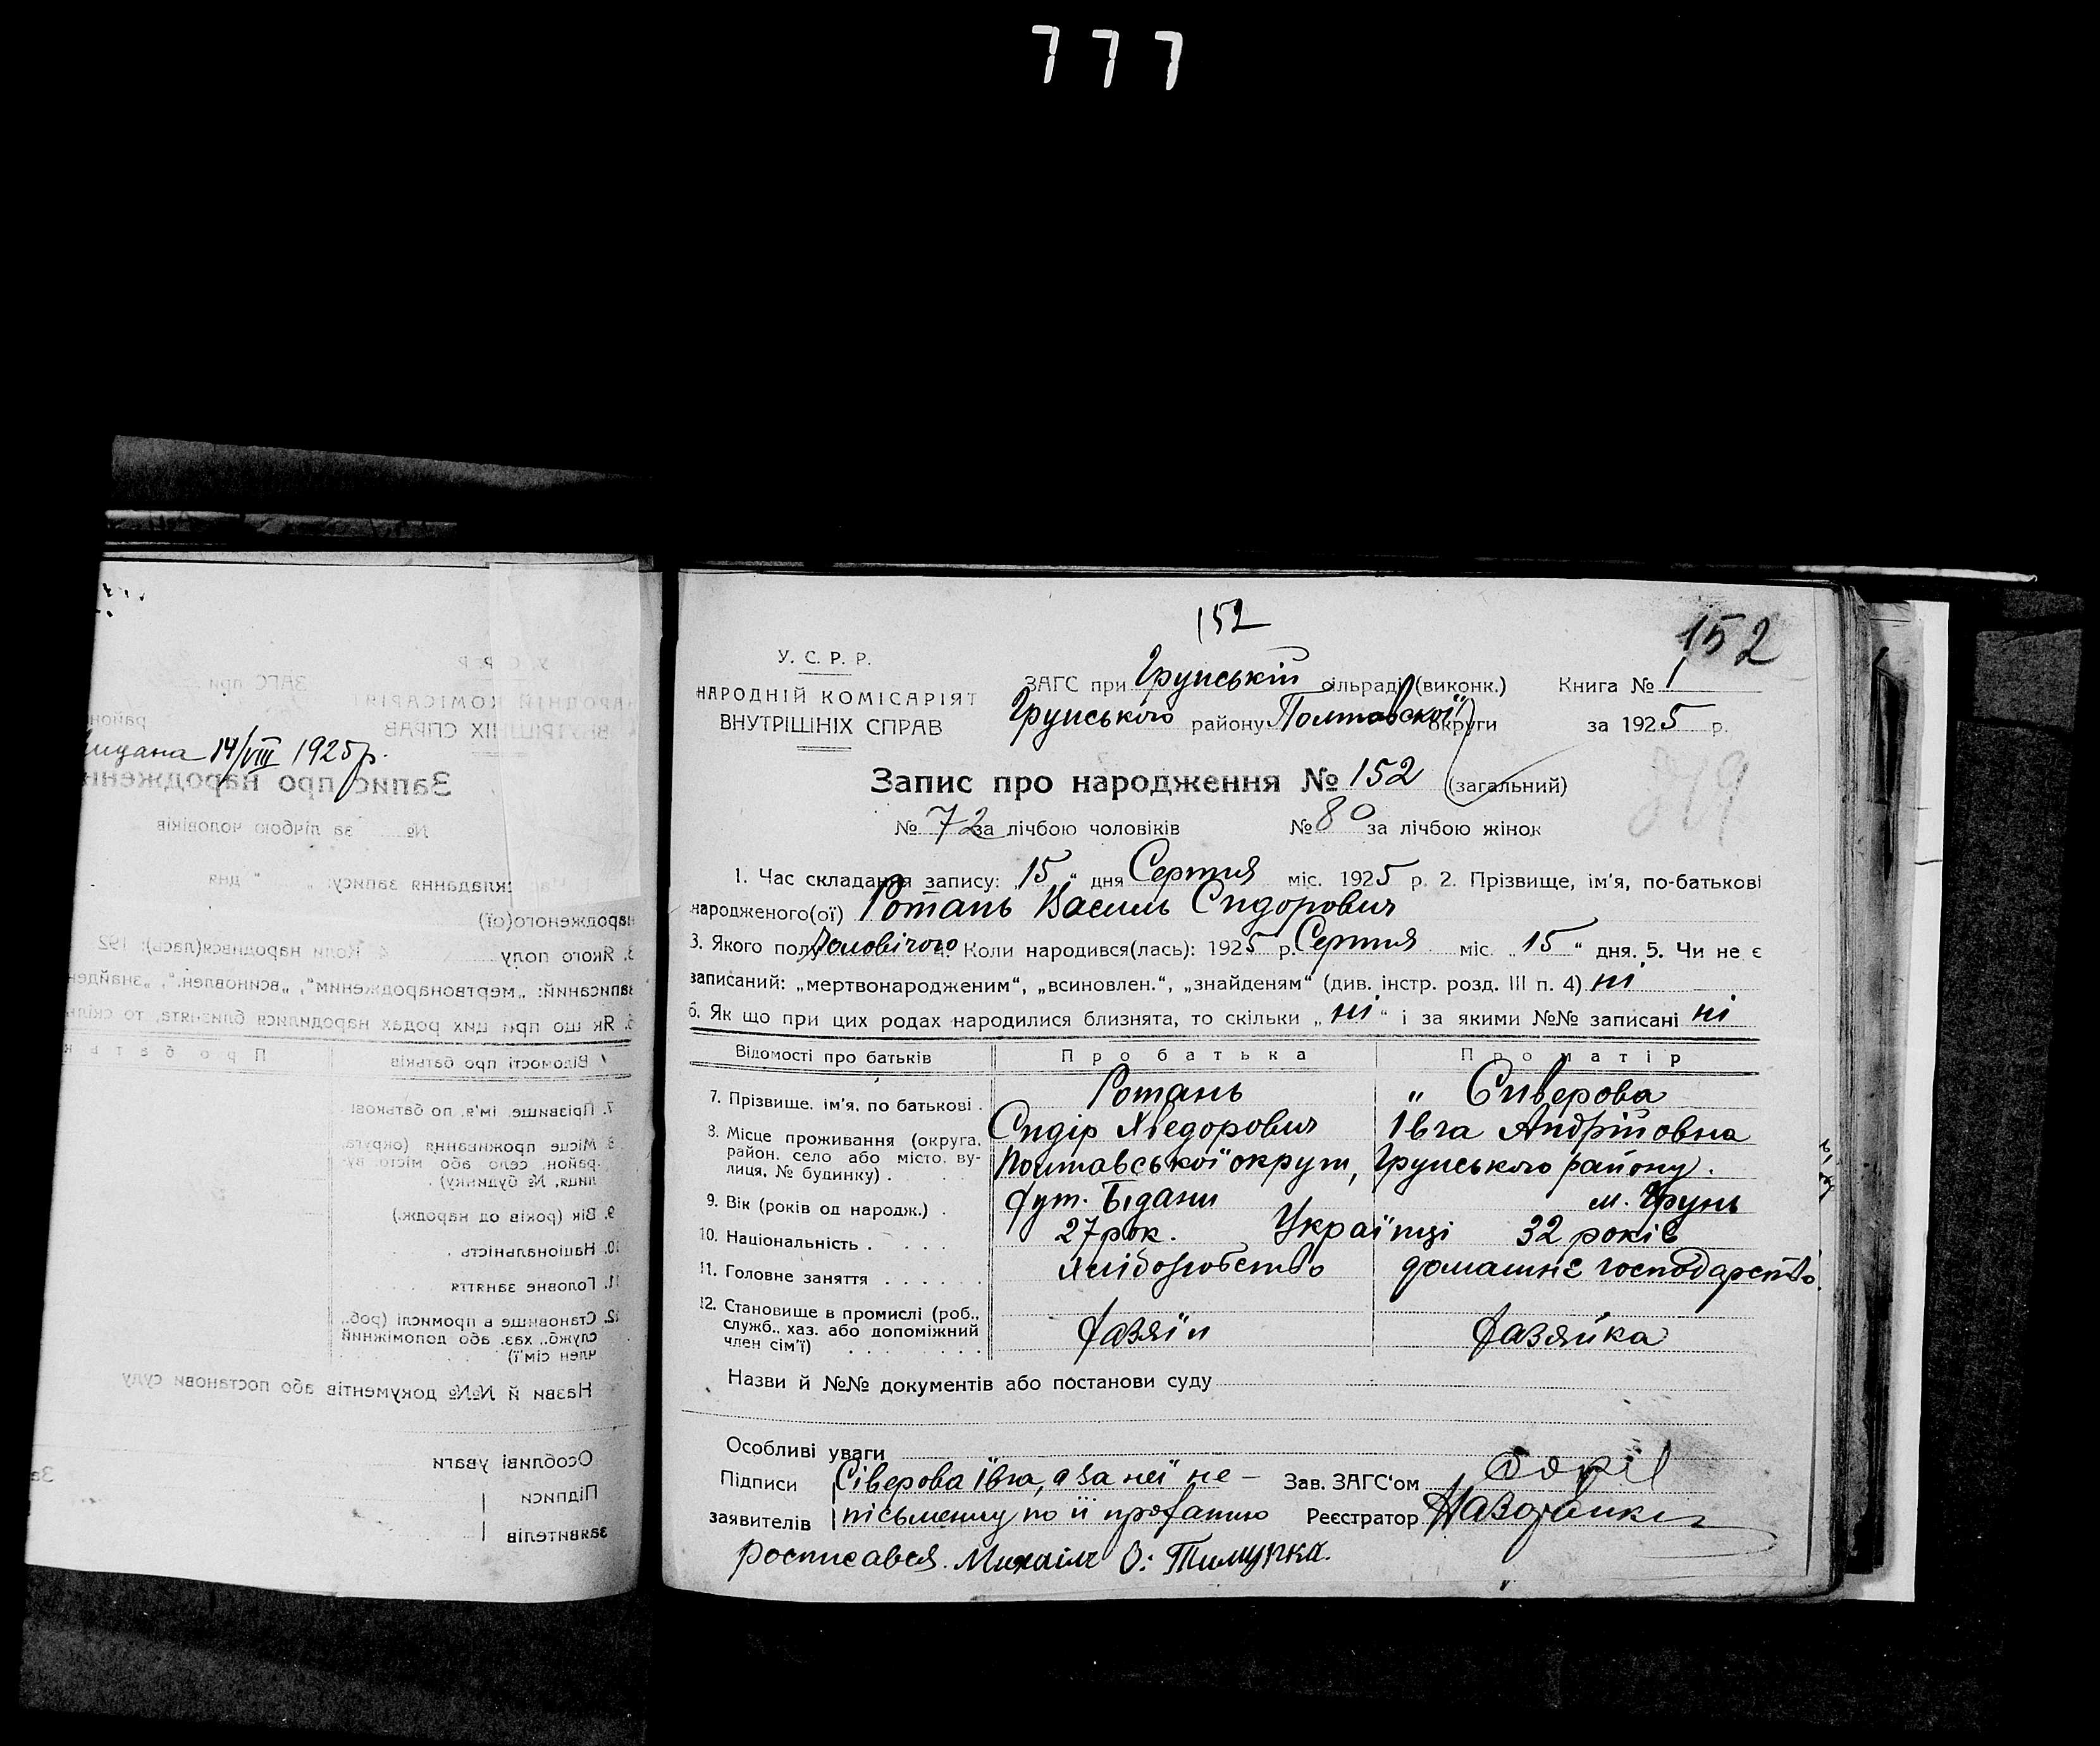 777
152
152
У. С. Р. Р.
НАРОДНІЙ КОМІСАРІЯТ
ВНУТРІШНІХ СПРАВ
ЗАГС при Грунській сільраді (виконк.) Книга № 1
Грунського району Полтавської округи за 1925 р.
14/VIII 1925 р.
Запис про народження № 152 (загальний)
№ 72 за лічбою чоловіків № 80 за лічбою жінок
1. Час складання запису: „15“ дня Серпня міс. 1925 р. 2. Прізвище, ім'я, по-батькові
народженого(ої) Ротань Василь Сидорович
3. Якого полу Чоловічого 4. Коли народився(лась): 1925 р. Серпня міс. „15“ дня. 5. Чи не є
записаний: „мертвонародженим“, „всиновлен.“, „знайденям“ (див. інстр. розд. III п. 4) ні
6. Як що при цих родах народилися близнята, то скільки „ні“ і за якими №№ записані ні
Відомості про батьків Про батька Про матір
7. Прізвище, ім'я, по батькові . Ротань " Сиверова
Сидір Хведорович Івга Андрійовна
8. Місце проживання (округа, район, село або місто, вулиця, № будинку) . Полтавської округи, Грунського району.
хут. Бідани м. Грунь
9. Вік (років од народж.) . 27 рок. 32 років
10. Національність . . . . Українці
11. Головне заняття . . . . . . Хліборобство домашнє господарство.
12. Становище в промислі (роб., служб., хаз. або допоміжний член сім'ї) . . . . . . . Хазяїн Хазяйка
Назви й №№ документів або постанови суду
Особливі уваги
Підписи Сіверова Івга, а за неї не- Зав. ЗАГС'ом
заявителів письменну по її проханню Реєстратор
росписався. Михаіл